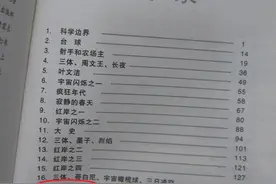 1. 科学边界 1
2. 台球 14
3. 射手和农场主 19
4. 三体、周文王、长夜 36
5. 叶文洁 49
6. 宇宙闪烁之一 57
7. 疯狂年代
8. 寂静的春天
9. 红岸之一
10. 宇宙闪烁之二
11. 大史 88
12. 三体、墨子、烈焰 94
13. 红岸之二 102
14. 红岸之三
15. 红岸之四 121
16. 三体、哥白尼、宇宙橄榄球、三日连珠 127